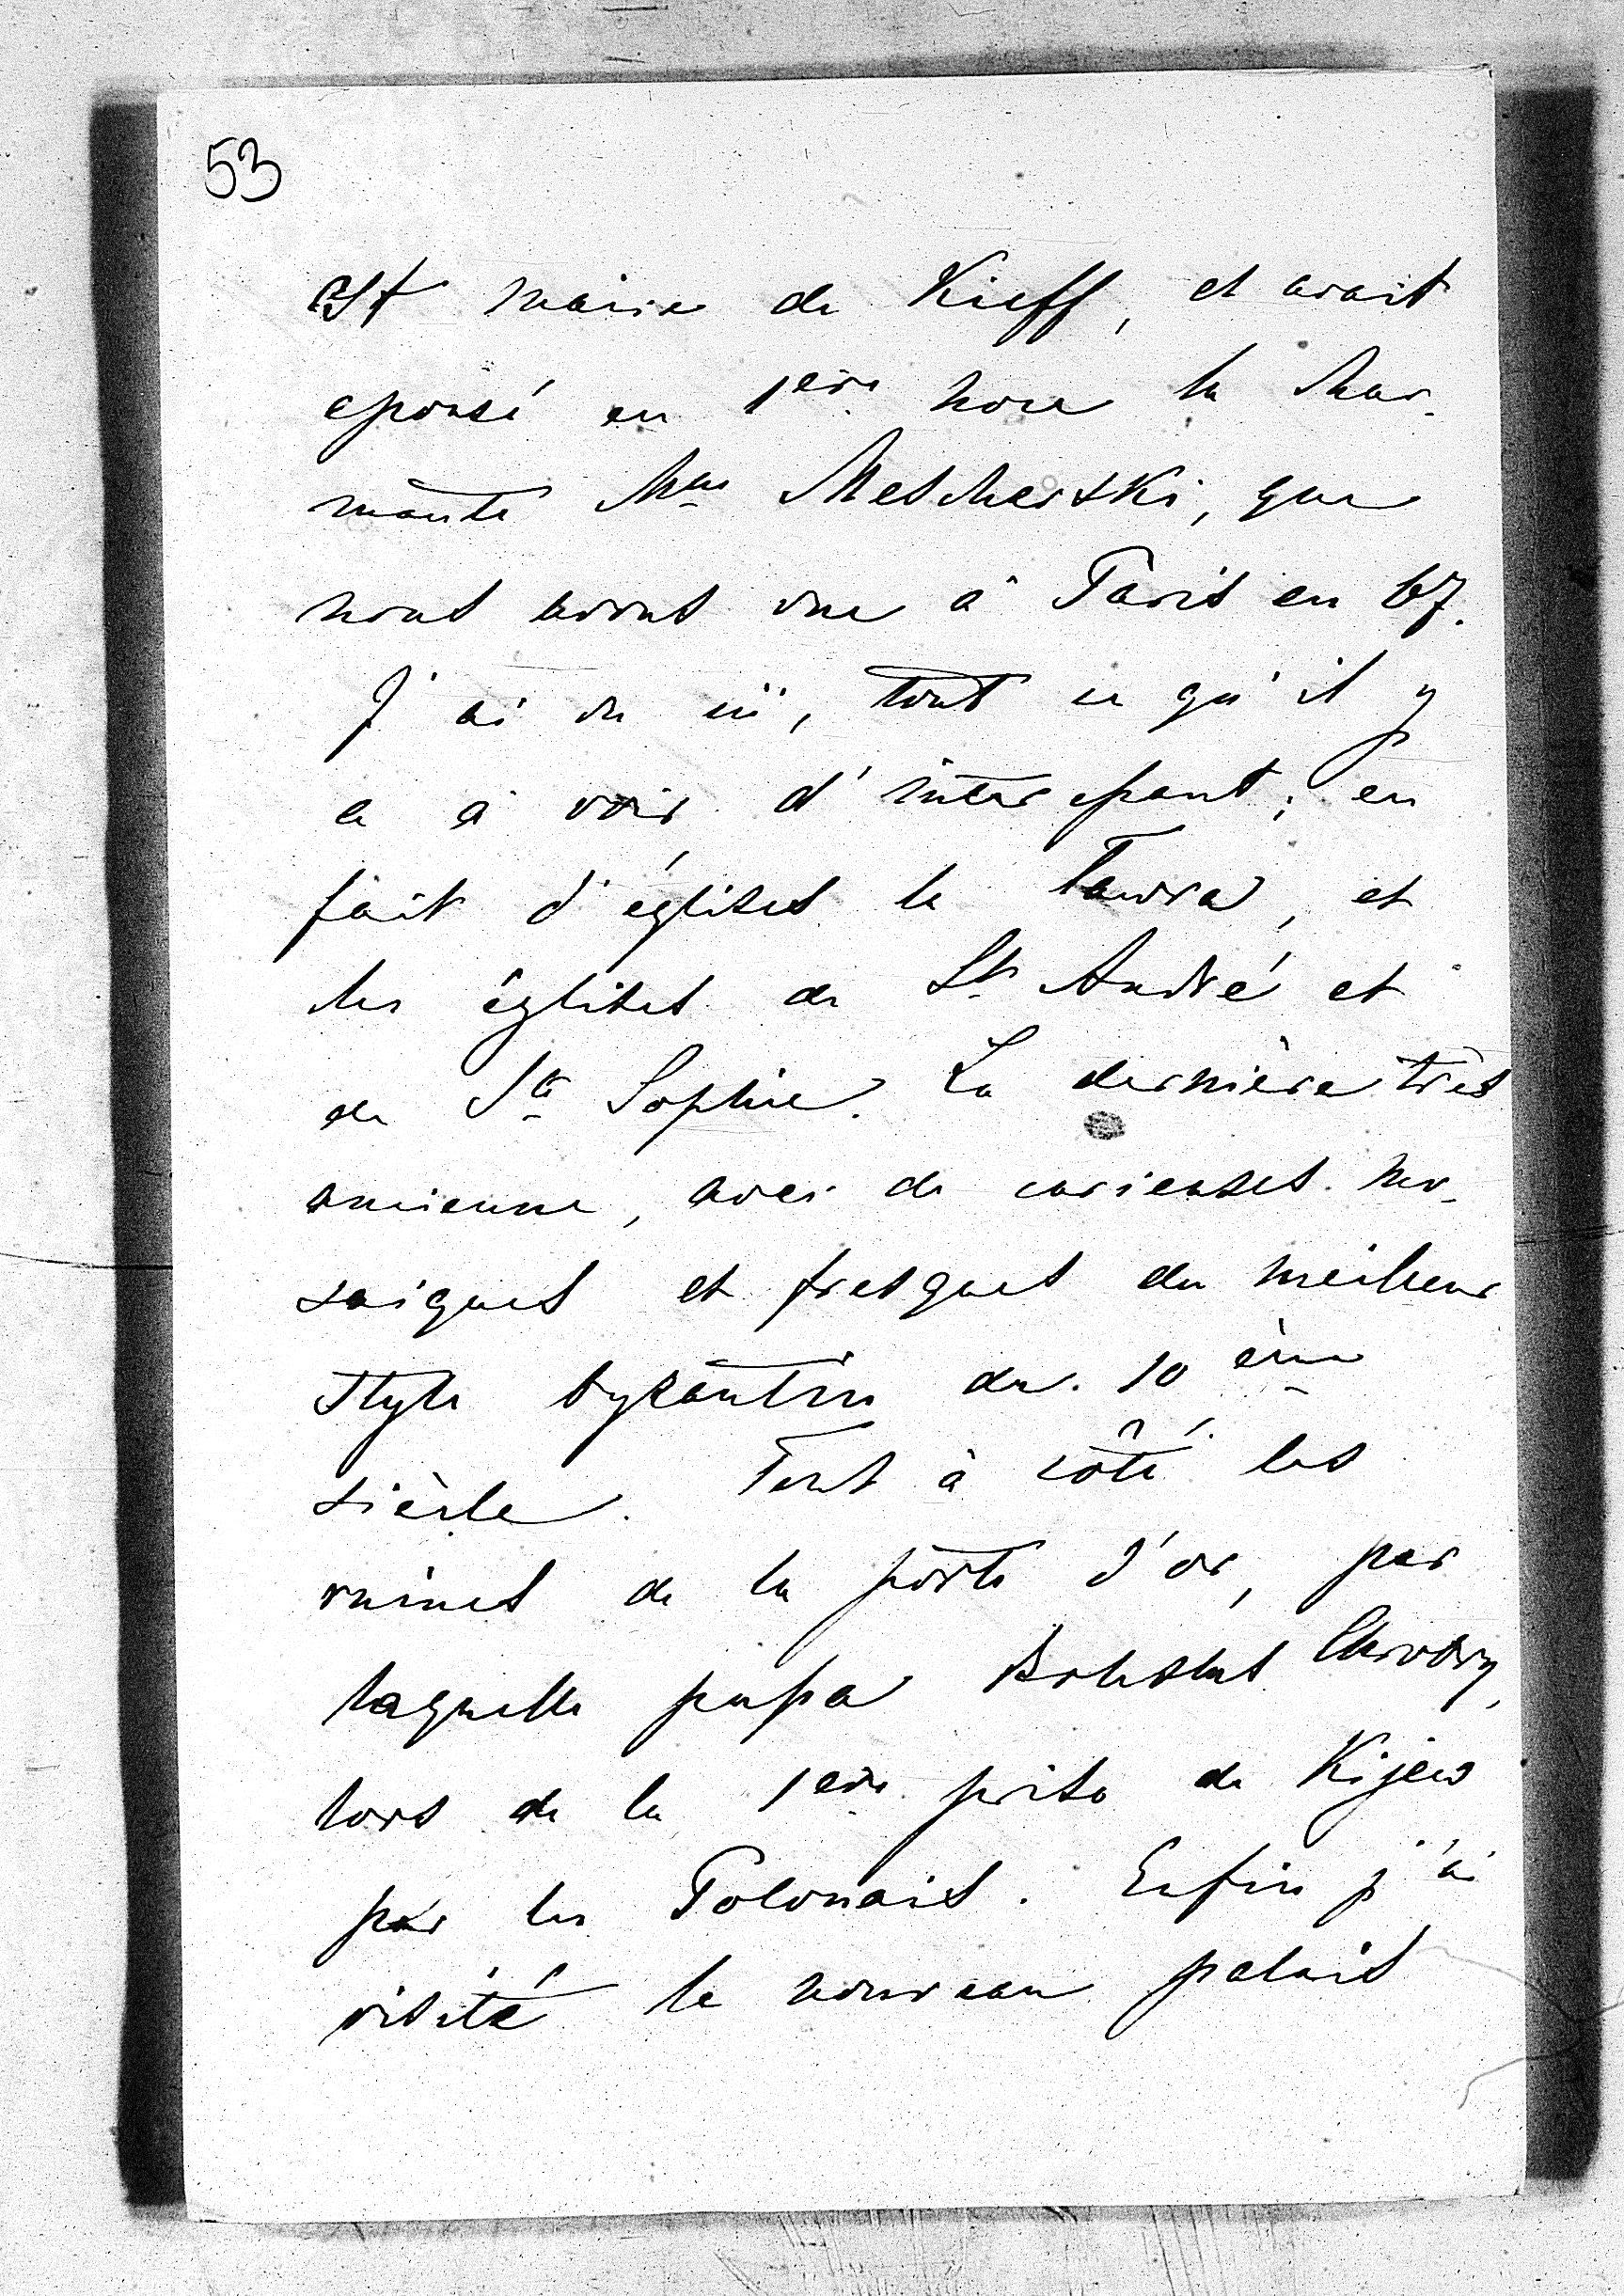 53
est maire de Kieff, et avait
epousé en 1ère noce la char-
mante Mme Mescherski, que
nous avons vue à Paris en 67.
J'ai vu ici, tout ce qu'il y
a à voir d'interessant; en
fait d'églises la Lawra, et
les églises de St André et
de Ste Sophie. La dernière très
ancienne, avec de curieuses mo-
saiques et fresques du meilleur
style byzantin du 10 ème
siècle. Tout à côté les
ruines de la porte d'or, par
laquelle passa Boleslas Chrobry,
lors de la 1ère prise de Kijew
par les Polonais. Enfin j'ai
visité le nouveau palais